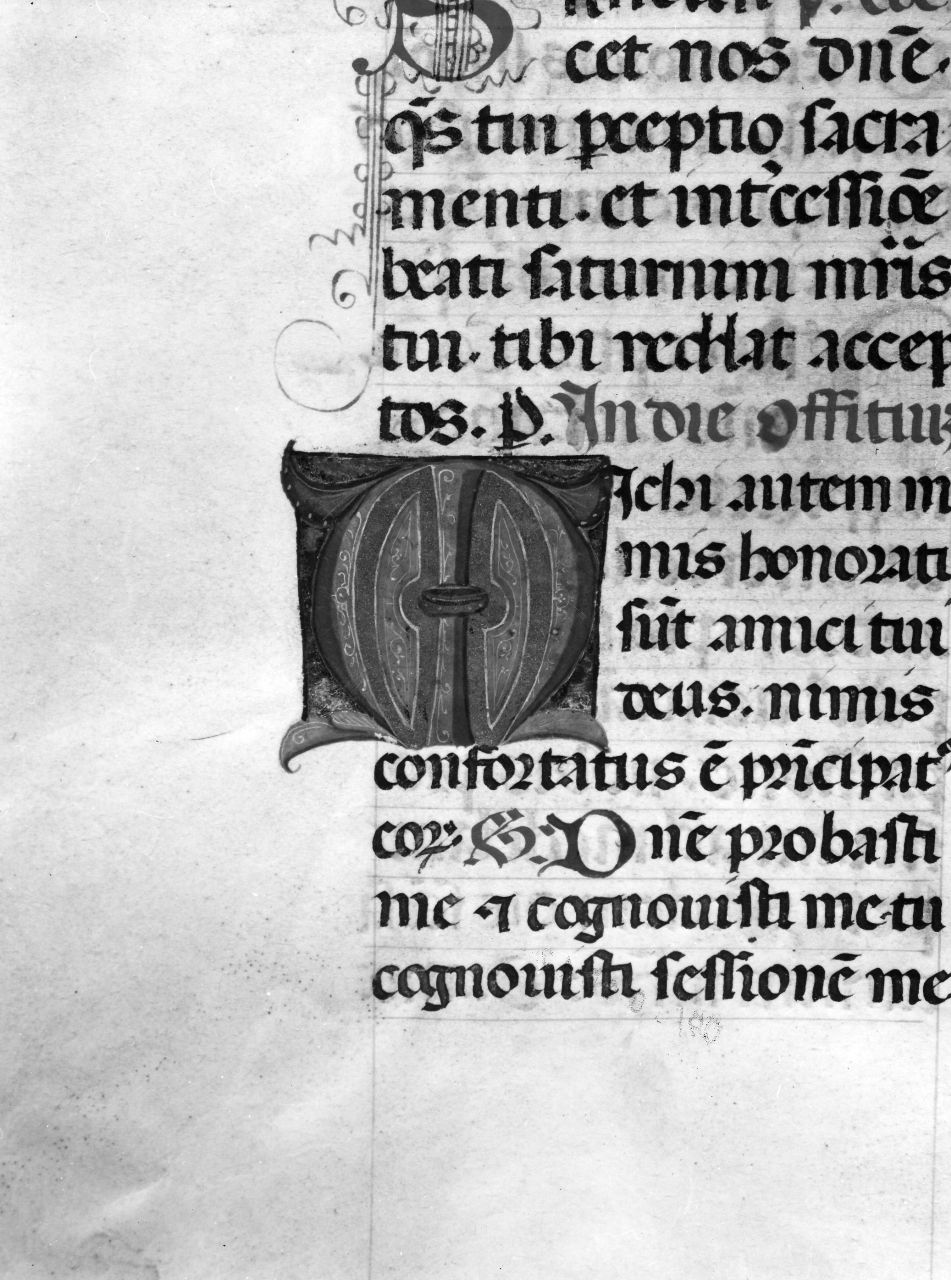 S
cet nos dn̄e.
q̄s tui ꝑceptio sacra
menti. et int̓cessiōe
beati saturnini mr̄is
tui. tibi reddat accep
tos. P. In die offitiū
Michi autem ni
mis honorati
sūt amici tui
deus. nimis
confortatus ē prīcipat᾿
eoꝝ. S. Dn̄e probasti
me ⁊ cognouisti me. tu
cognouisti sessionē me